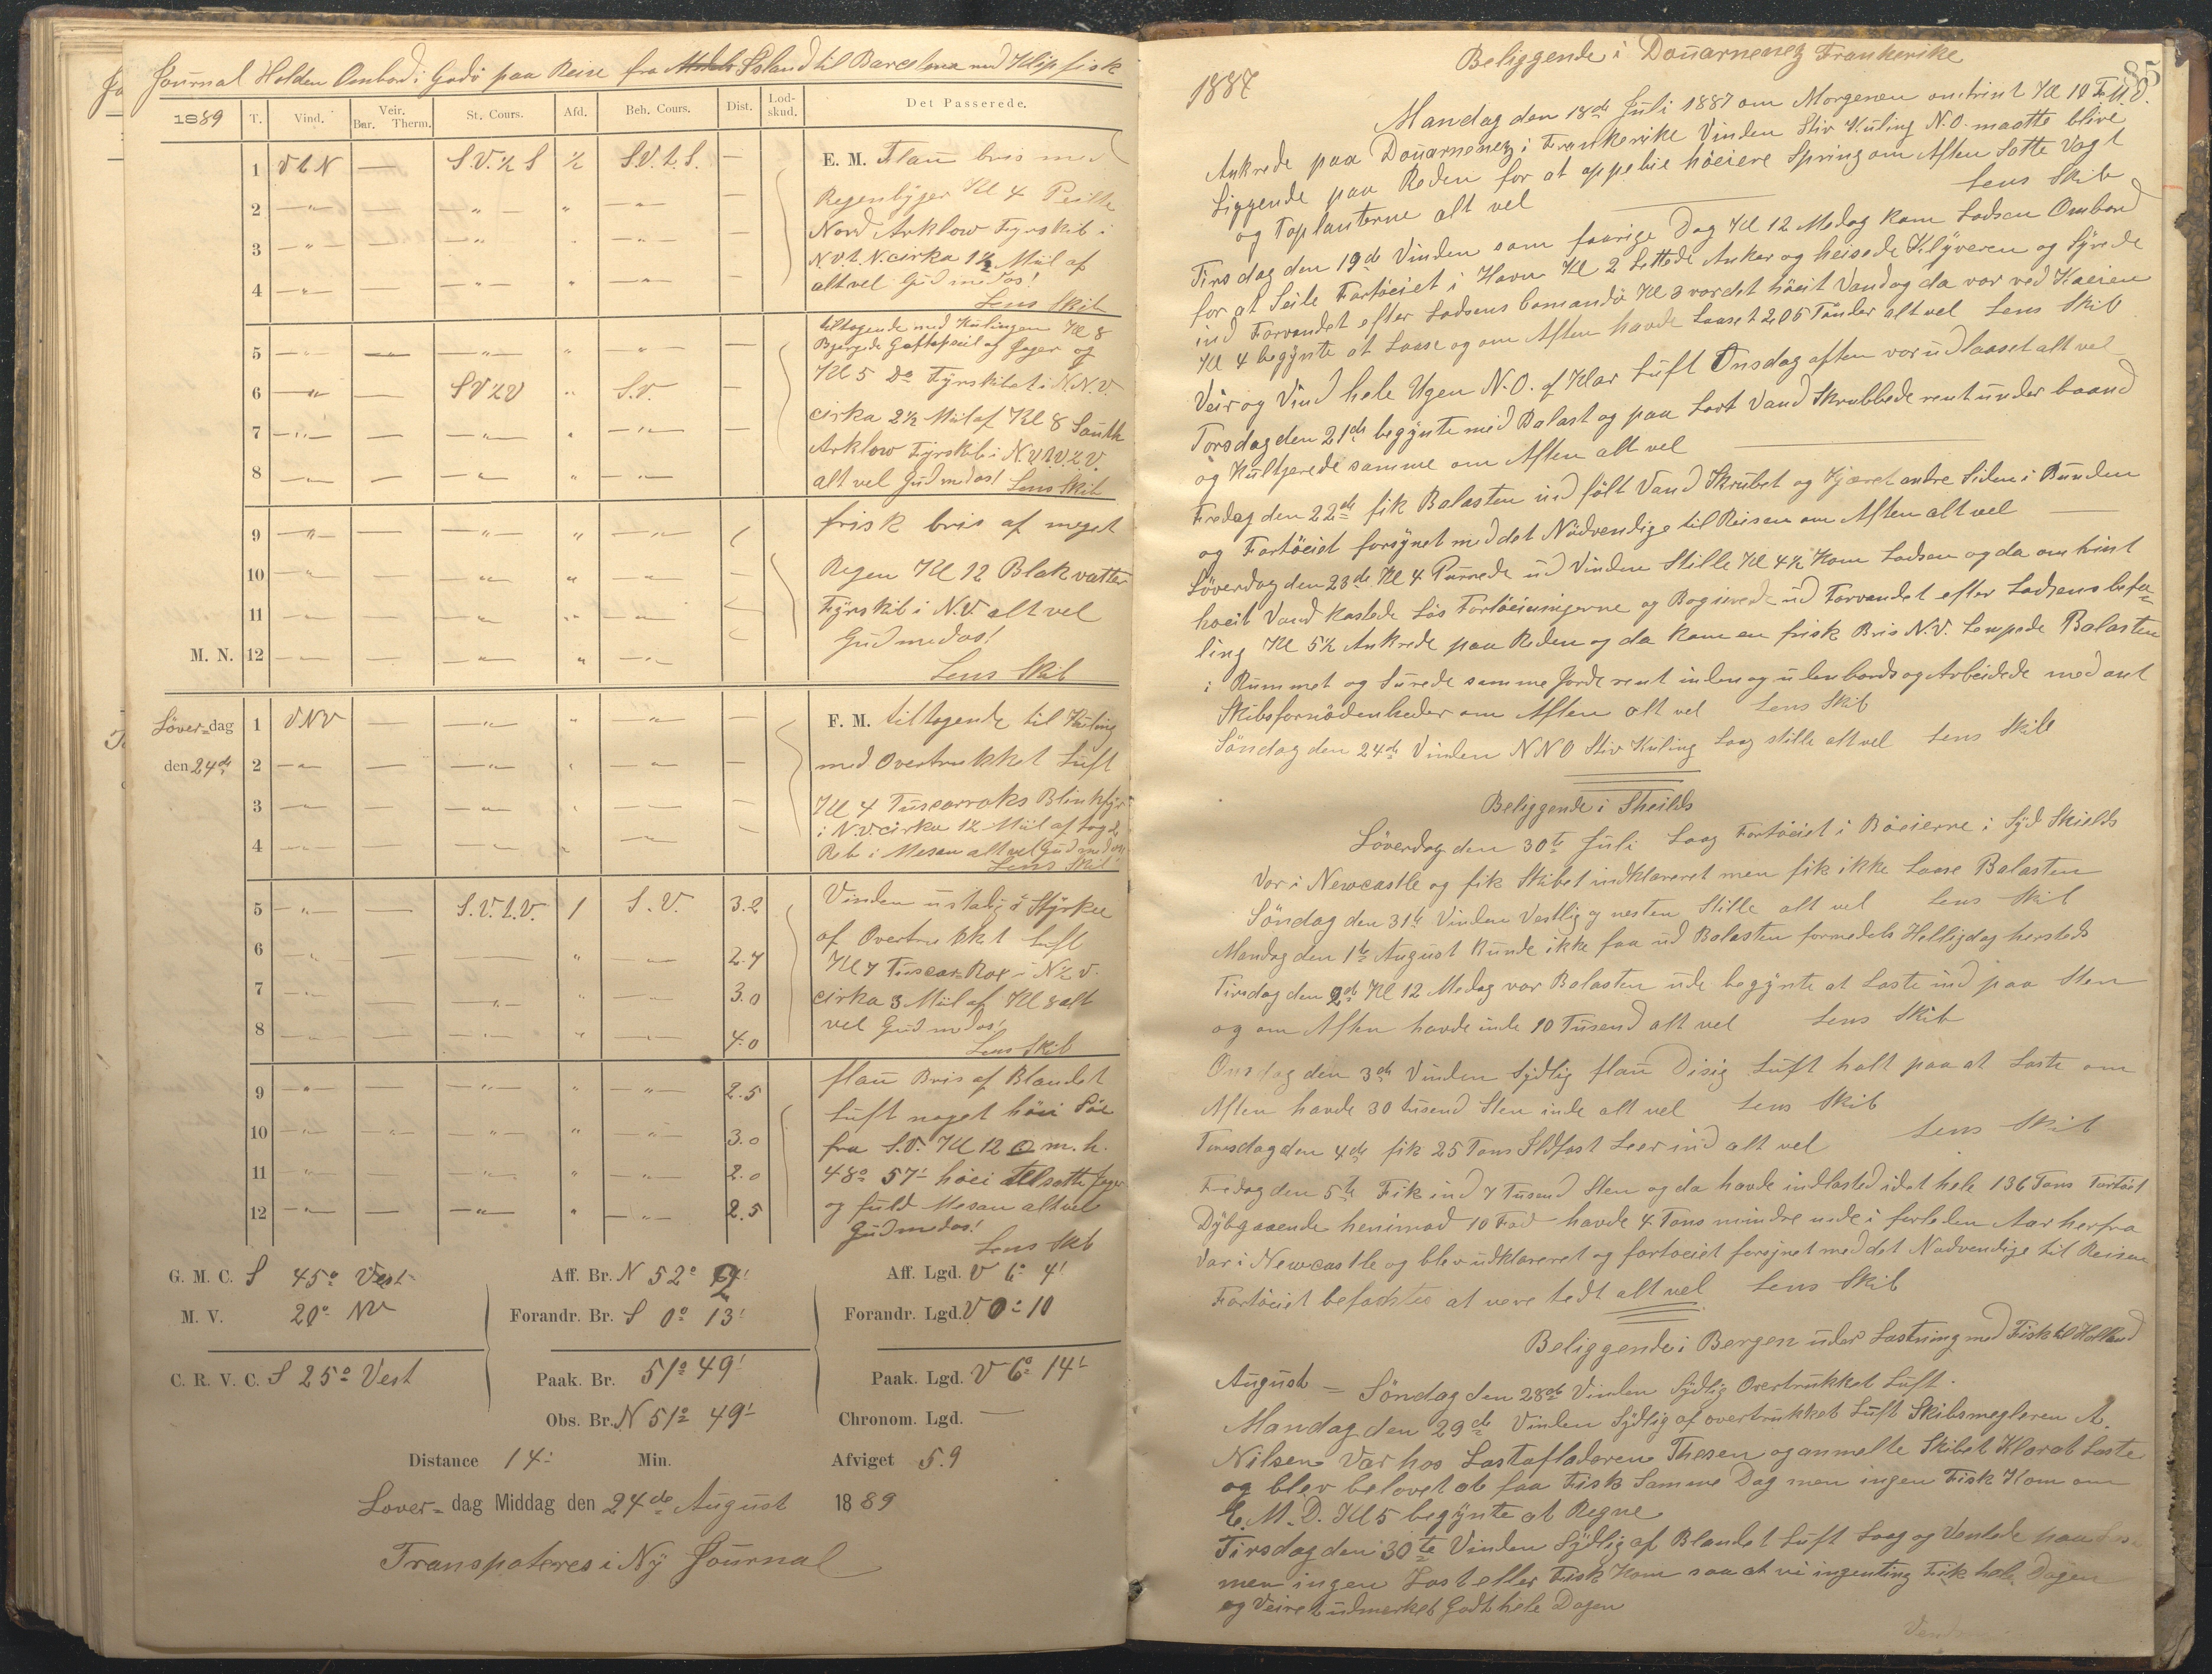 Journal Holden Ombord i Godö paa Reise fra Island til Barcelona med Klipfisk
1889 T. Vind. Veir. Bar. Therm. St. Cours. Afd. Beh. Cours. Dist. Lod-skud. Det Passerede.
1 V t N — S.V. ½ S ½ S.V. t. S. — E. M. Flau bris med
2 Regenbyger Kl 4 Peilte
3 Nord Arklow Fyrskib i
N.V. t. N. cirka 1½ Miil af
4 alt vel Gud med os!
Lens Skib
tiltagende med Kulingen Kl 8
5 Bjergede Gaftopseil af Jager og
Kl 5 Do Fyrskibet i N.N.V.
6 S V ½ V S.V. cirka 2½ Miil af Kl 8 South
7 Arklow Fyrskib i N.V. t. V. ½ V.
8 alt vel Gud med os! Lens Skib
9 frisk bris af meget
10 Regen Kl 12 Blakvatter
11 Fyrskib i N.V. alt vel
Gud med os!
M. N. 12 Lens Skib
Löver-dag 1 V N V F. M. tiltagende til Kuling
den 24de 2 med Overtrukket Luft
3 Kl 4 Tuscarroks Blinkfyr
i N.V. cirka 1½ Miil af tog 2
4 Reb i Mesan alt vel Gud med os
Lens Skib
5 S.V. t. V. 1 S.V. 3.2 Vinden ustadig i Styrke
6 2.7 af Overtrukket Luft
Kl 7 Tuscar Rox i N ½ V.
7 3.0 cirka 3 Miil af Kl 8 alt
8 4.0 vel Gud med os!
Lens Skib
9 2.5 flau Bris af Blandet
Luft noget höi Söe
10 3.0 fra S.V. Kl 12 m. h.
11 2.0 48° 57' höei tilsatte Jager
12 2.5 og fuld Mesan alt vel
Gud med os!
Lens Skib
G. M. C. S 45° Vest Aff. Br. N 52° 2' Aff. Lgd. V 6° 4'
M. V. 20° NV Forandr. Br. S 0° 13' Forandr. Lgd. V 0° 10
C. R. V. C. S 25° Vest Paak. Br. 51° 49' Paak. Lgd. V 6° 14'
Obs. Br. N 51° 49' Chronom. Lgd. —
Distance 14' Min. Afviget 5.9
Lover-dag Middag den 24de August 1889
Transpoteres i Ny Journal
85
Beliggende i Douarnenez Frankerike
1887
Mandag den 18de Juli 1887 om Morgenen omtrint Kl 10 F.M.D.
Ankrede paa Douarnenez i Frankerike Vinden Stiv Kuling N.O. maatte blive
Liggende paa Reden for at oppebie höeiere Spring om Aften Satte Vagt
og Toplanterne alt vel Lens Skib
Tirsdag den 19de Vinden som foorige Dag Kl 12 Medag kom Lodsen Ombord
for at Seile Fartöeiet i Havn Kl 2 Lettede Anker og heisede Klyveren og Syrede
ind Farvandet efter Lodsens Comandö Kl 3 var det höeit Vand og da var ved Kaeien
Kl 4 begynte at Losse og om Aften havde Losset 206 Tönder alt vel Lens Skib
Veir og Vind hele Ugen N.O. af Klar Luft Onsdag aften var udlosset alt vel
Torsdag den 21de begynte med Balast og paa Lavt Vand Skrubbede rent under baand
og Kultjerede samme om Aften alt vel
Fredag den 22de fik Balasten ind fölt Vand Skrubet og Tjæret andre Siden i Bunden
og Fartöeiet forsynet med det Nödvendige til Reisen om Aften alt vel
Löverdag den 23de Kl 4 Purrede ud Vinden Stille Kl 4½ Kom Lodsen og da omtrint
höeit Vand kastede Lös Fortöeiningerne og Bogserede ud Farvandet efter Lodsens befa-
ling Kl 5½ Ankrede paa Reden og da kom en frisk Bris N.V. Lempede Balasten
i Rummet og Surede samme gjorde rent inden og udenbords og Arbeidede med ant
Skibsfornödenheder om Aften alt vel Lens Skib
Söndag den 24de Vinden NNO Stiv Kuling Laag stille alt vel Lens Skib
Beliggende i Sheilds
Löverdag den 30te Juli Laag Fartöeiet i Böeierne i Syd Shields
Var i Newcastle og fik Skibet indklareret men fik ikke Losse Balasten
Söndag den 31te Vinden Vestlig og nesten Stille alt vel Lens Skib
Mandag den 1te August Kunde ikke faa ud Balasten formedels Helligdag hersteds
Tirsdag den 2de Kl 12 Medag var Balasten ude begynte at Laste ind paa Sten
og om Aften havde inde 10 Tusend alt vel Lens Skib
Onsdag den 3de Vinden Sydlig flau Disig Luft holt paa at Laste om
Aften havde 30 tusend Sten inde alt vel Lens Skib
Torsdag den 4de fik 25 Tons Ildfast Leer ind alt vel Lens Skib
Fredag den 5te Fik ind 7 Tusend Sten og da havde indlasted i det hele 136 Tons Fartöiet
Dybgaaende henimod 10 Fod havde 4 Tons mindre inde i forleden Aar herfra
Var i Newcastle og blev udklareret og fartöeiet forsynet med det Nodvendige til Reisen
Fartöeiet befactes at vere tedt alt vel Lens Skib
Beliggende i Bergen under Lastning med Fisk til Holland
August — Söndag den 28de Vinden Sydlig Overtrukket Luft.
Mandag den 29de Vinden Sydlig af overtrukket Luft Skibsmegleren A.
Nilsen Var hos Lastafladeren Thesen og anmelte Skibet Klar at Laste
og blev belovet at faa Fisk Samme Dag men ingen Fisk Kom om
E.M.D. Kl 5 begynte at Regne
Tirsdag den 30te Vinden Sydlig af Blandet Luft Laag og Ventede paa
men ingen Last eller Fisk Kom saa at vi ingenting Fik hele Dagen
og Veiret udmerket Godt hele Dagen